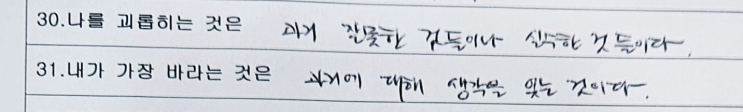 30.나를 괴롭히는 것은 과거 잘못한 것들이나 실수한 것들이다.
31.내가 가장 바라는 것은 과거에 대해 생각을 잊는 것이다.